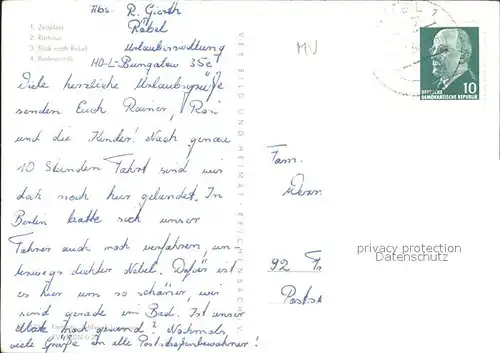 Abs. R. Gierth
Röbel
Urlaubersiedlung
HO-L-Bungalow 35c
1. Zeltplatz
2. Rathaus
3. Blick nach Röbel
4. Badegaststätte
MV
10
DEUTSCHE
DEMOKRATISCHE REPUBLIK
Viele herzliche Urlaubsgrüße
senden Euch Rainer, Rosi
und die Kinder! Nach genau
10 Stunden Fahrt sind wir
doch noch hier gelandet. In
Berlin hatte sich unser
Fahrer auch noch verfahren, un-
terwegs dichter Nebel. Dafür ist
es hier um so schöner, wir
sind gerade im Bad. Ist unser
noch gesund? Nochmals
viele Grüße an alle Poststraßenbewohner!
VEB BILD UND HEIMAT · REICHENBACH i. V.
Fam.
92 Fr
Postst
privacy protection
Datenschutz